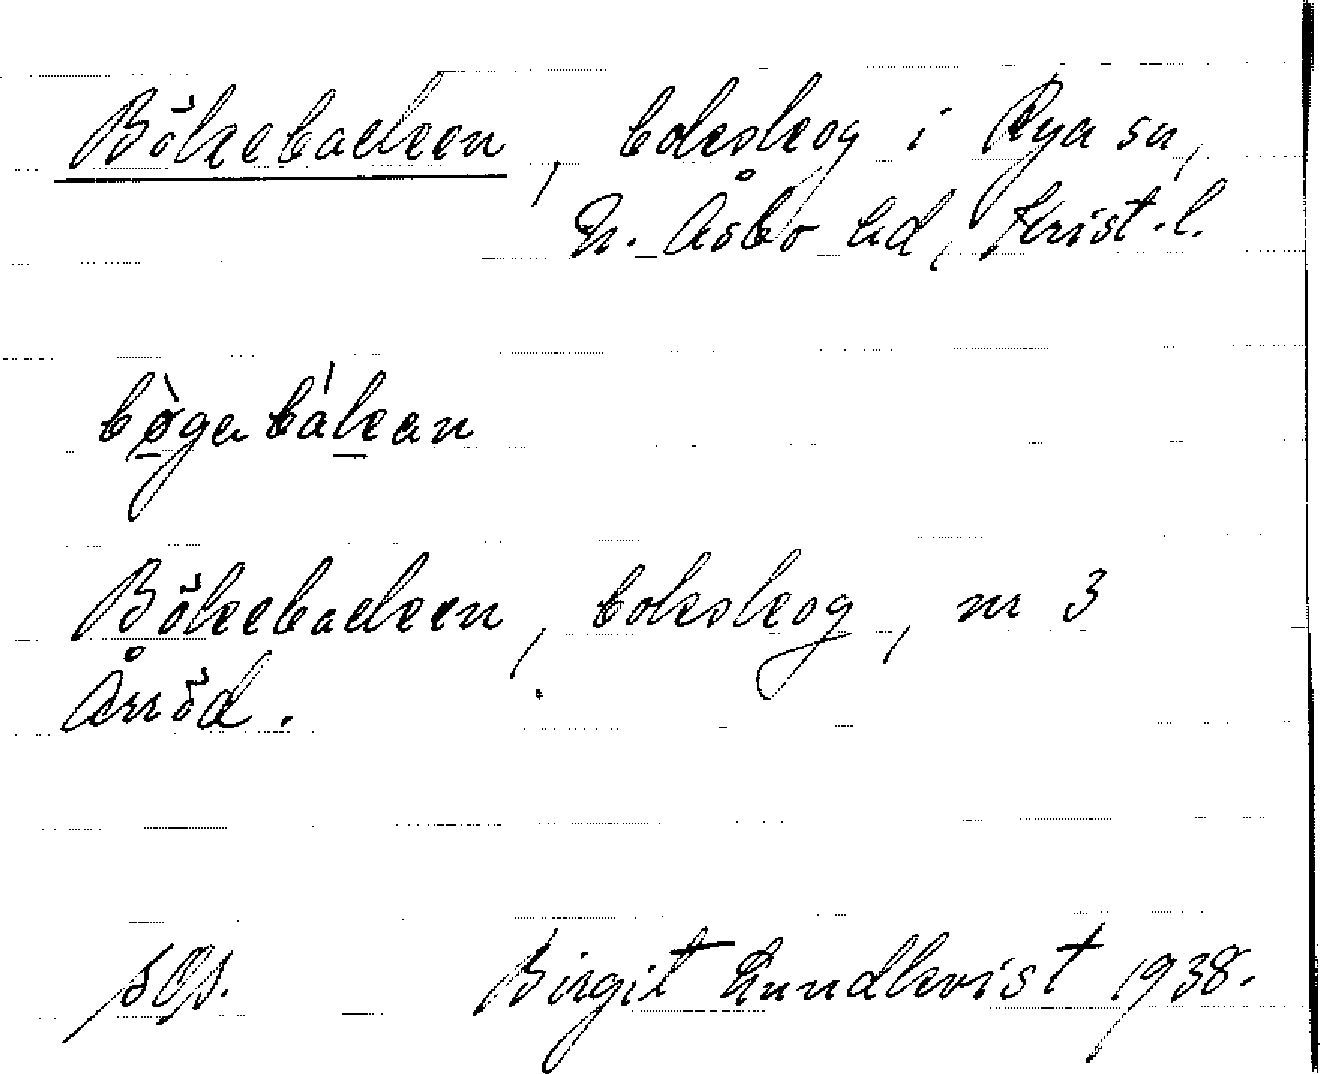 Bökebacken, bokskog i Rya sn,
N. Åsbo hd, Krist. l.
bø̀gabákan
Bökebacken, bokskog, nr 3
Årröd.
Birgit Lundkvist 1938.